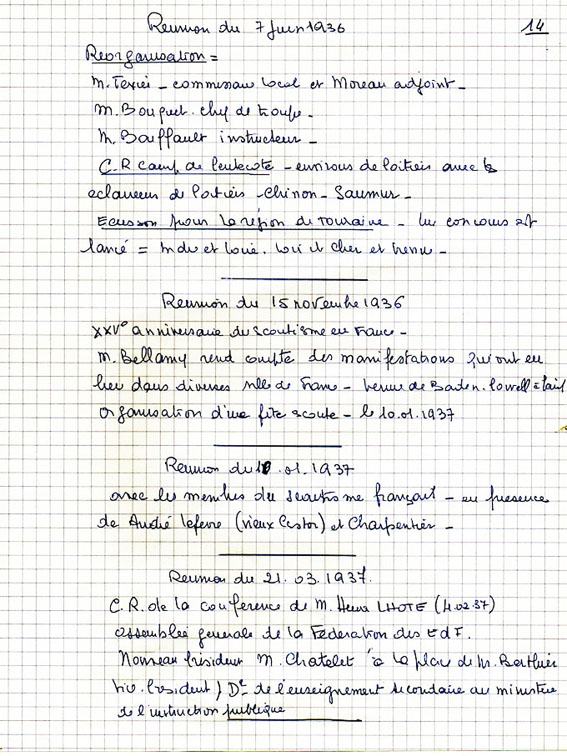 Reunion du 7 Juin 1936
14
Reorganisation =
M. Texier - commissaire local et Moreau adjoint -
M. Bouquet. chef de troupe -
M. Bouffault instructeur -
C.R camp de Pentecote - environs de Poitiers avec les
eclaireurs de Poitiers - Chinon - Saumur -
Ecusson pour la région de Touraine - Un concours est
lancé = Indre et Loire. Loir et Cher et Vienne -
Reunion du 15 novembre 1936
XXV° anniversaire du scoutisme en France -
M. Bellamy rend compte des manifestations qui ont eu
lieu dans diverses ville de France - venue de Baden. Powell à
organisation d'une fête scoute - le 10.01.1937
Reunion du 10.01.1937
avec les membres du scoutisme français - en presence
de André Lefevre (vieux Castor) et Charpentier -
Reunion du 21.03.1937.
C.R. de la conference de M. Henri LHOTE (4.02.37)
assemblée generale de la Federation des EdF.
Nouveau President M. Chatelet à la place de M. Berthier
Vice. President) Dr de l'enseignement secondaire au ministère
de l'instruction publique